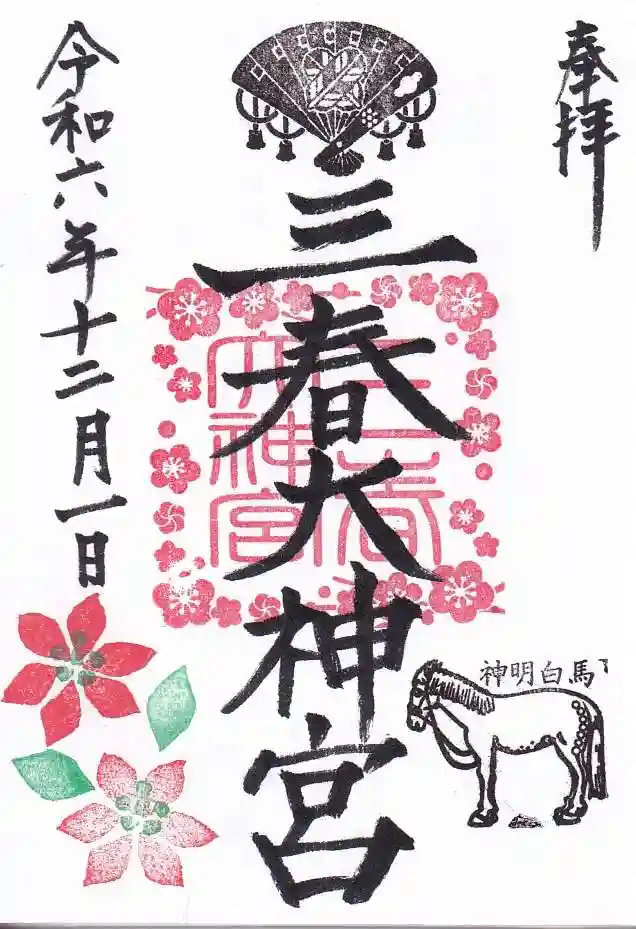 奉拝
三春大神宮
三春大神宮
神明白馬
令和六年十二月一日